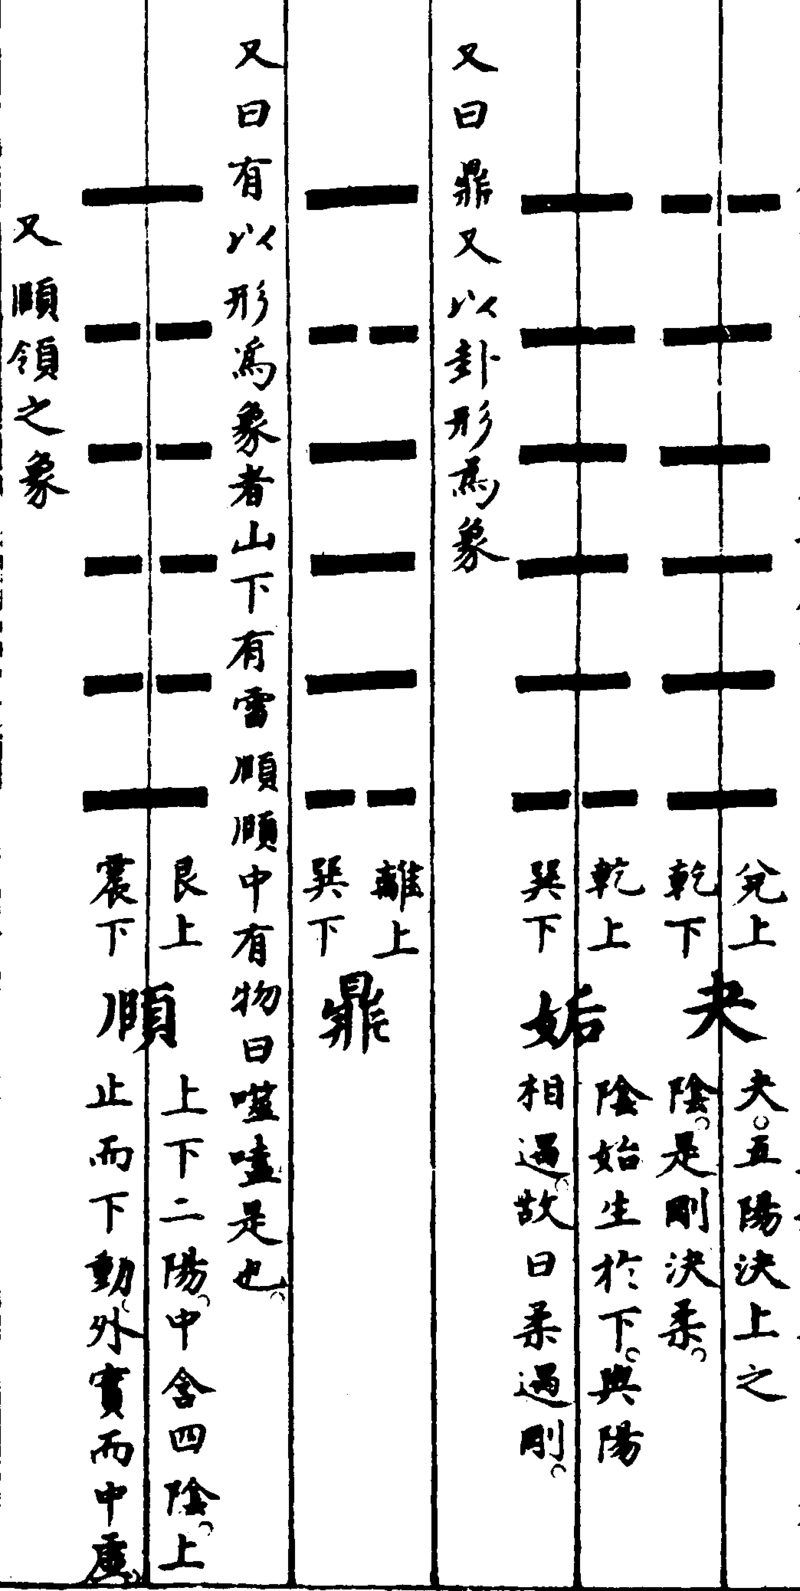 兌上
乾下
夬
夬。五陽決上之
陰。是剛決柔。
乾上
巽下
姤
陰始生於下。與陽
相遇。故曰柔遇剛。
又曰鼎又以卦形為象
離上
巽下
鼎
又曰有以形爲象者山下有雷頤頤中有物曰噬嗑是也。
艮上
震下
頤
上下二陽。中含四陰。上
止而下動。外實而中虛。
又頤頷之象